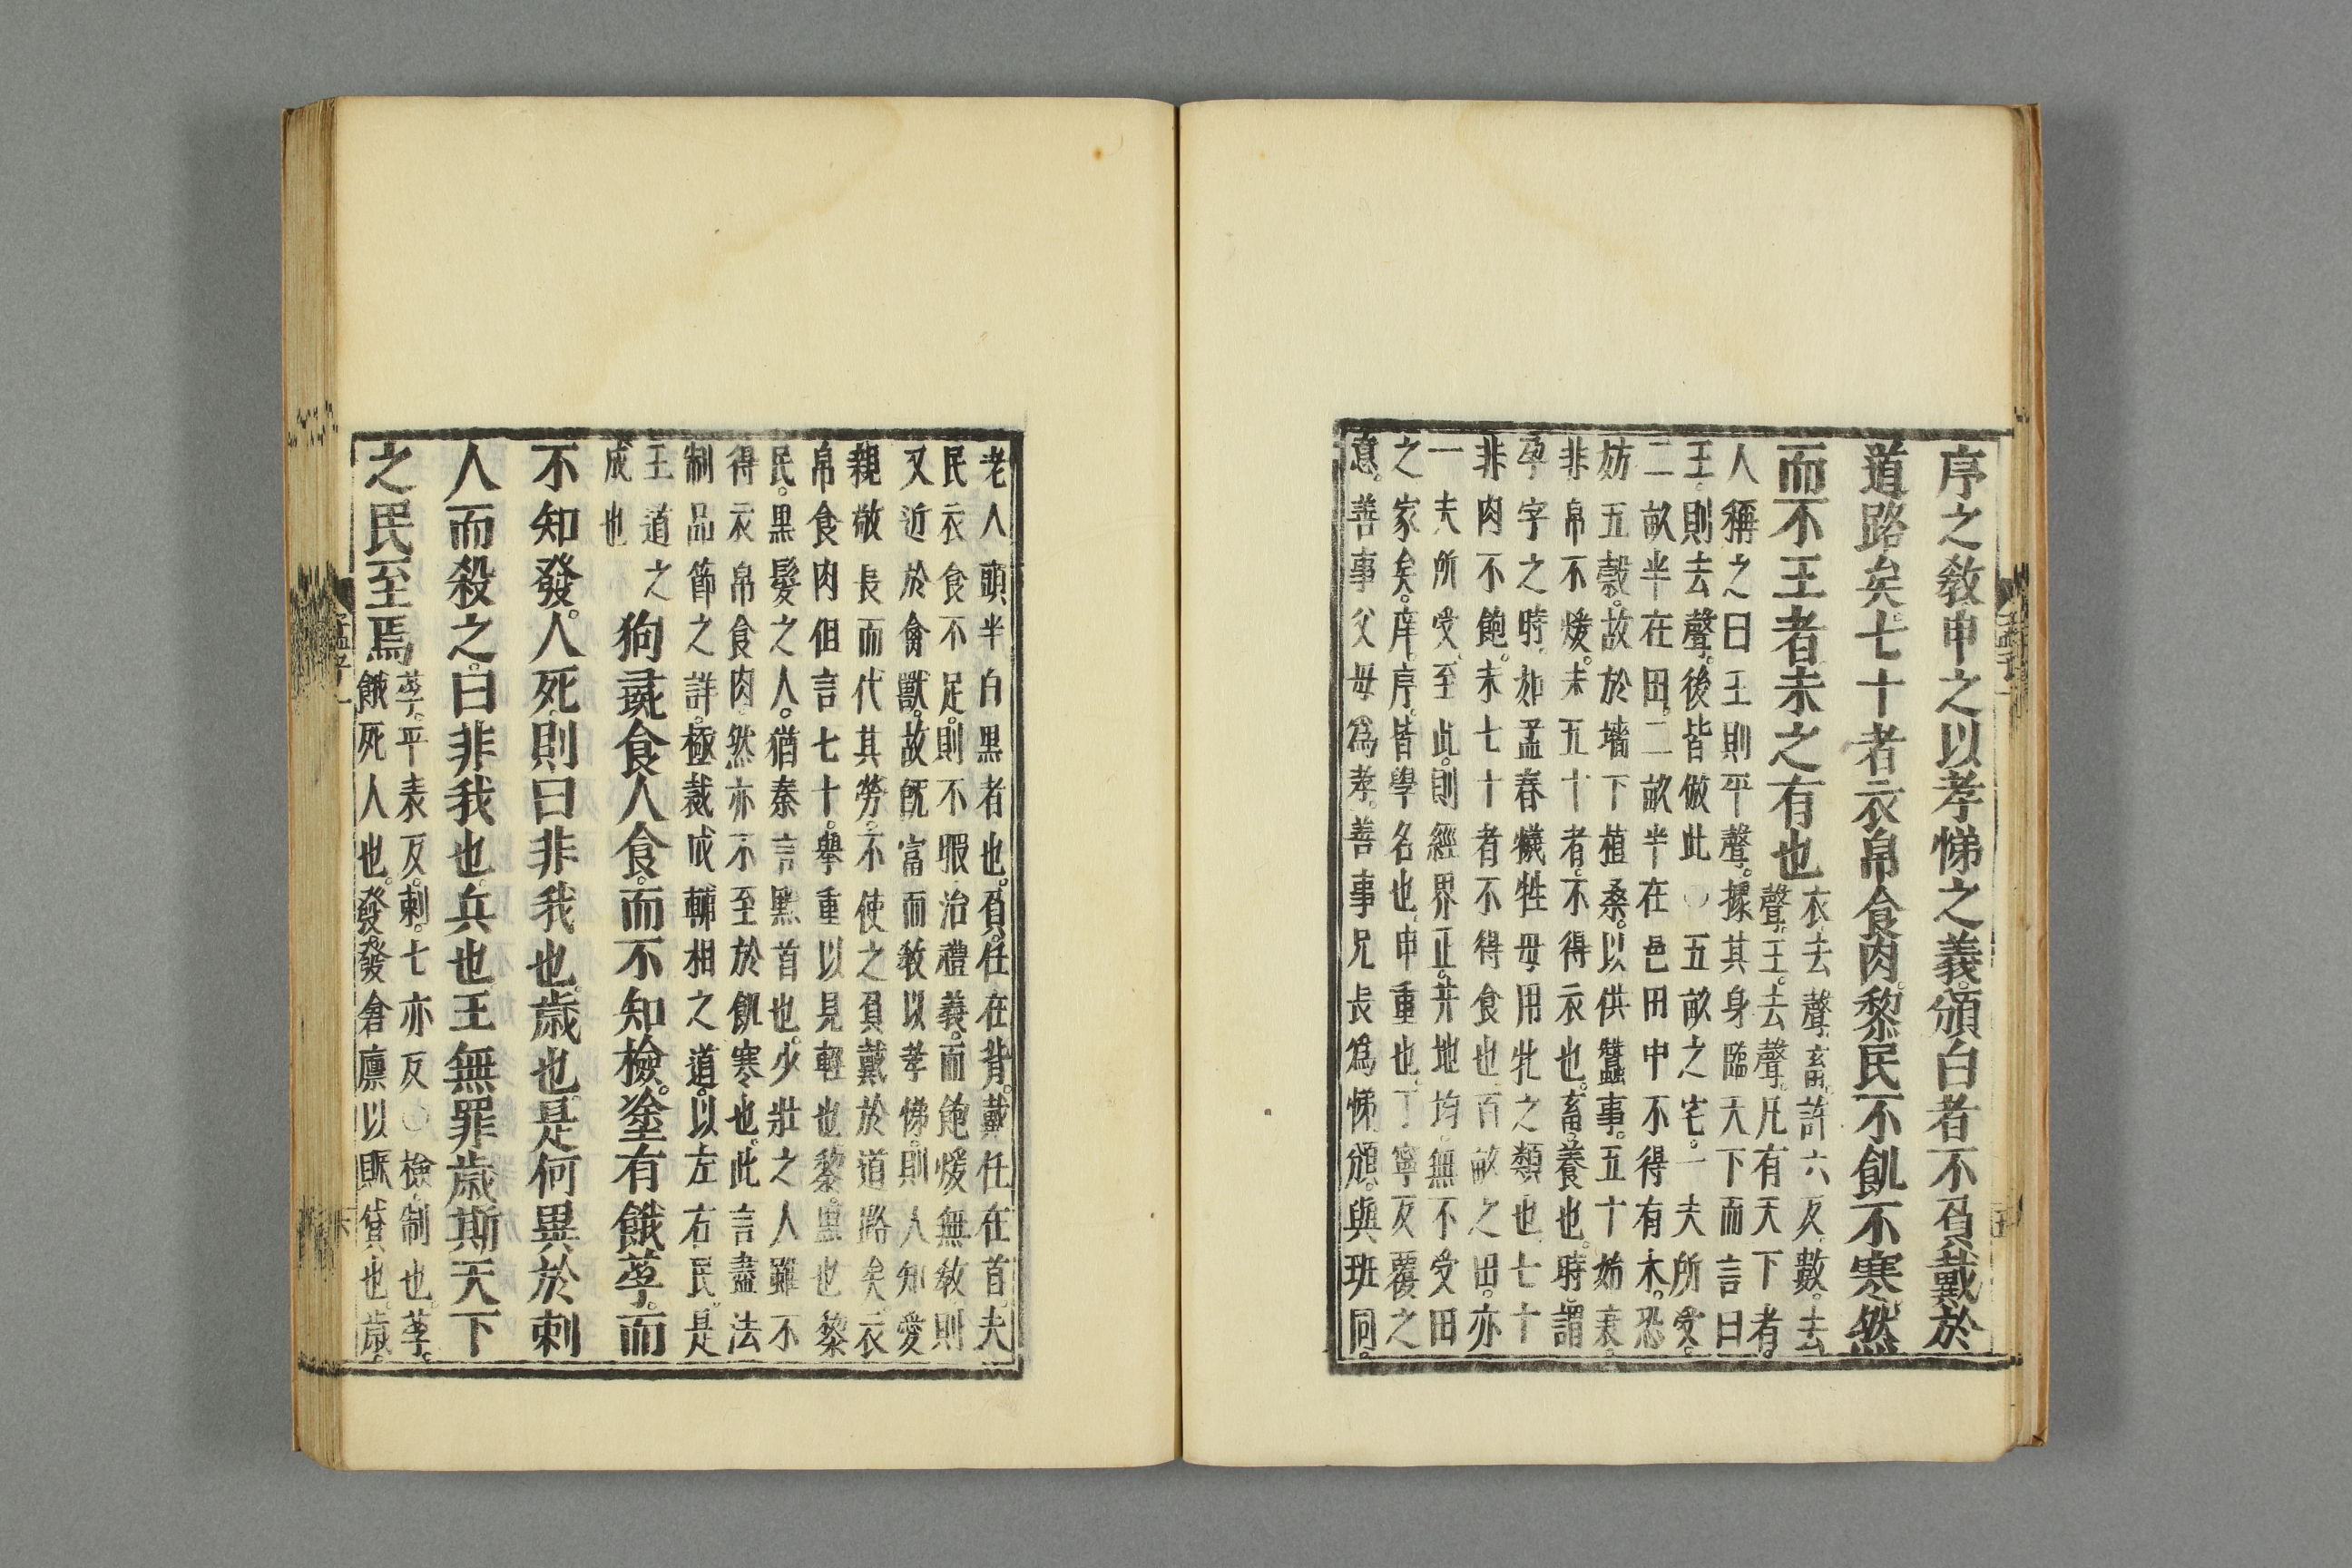 序之敎申之以孝悌之義。頒白者不負戴於
道路矣。七十者衣帛食肉。黎民不飢不寒。然
而不王者未之有也
衣。去聲。畜。許六反。數。去
聲。王。去聲。凡有天下者。
人稱之曰王則平聲。據其身臨天下而言曰
王。則去聲。後皆倣此○五畝之宅。一夫所受。
二畝半在田。二畝半在邑田中不得有木。恐
妨五穀。故於墻下植桑。以供蠶事。五十始衰。
非帛不煖。未五十者。不得衣也。畜。養也。時。謂
孕字之時。如孟春犧牲毋用牝之類也。七十
非肉不飽。未七十者不得食也。百畝之田。亦
一夫所受。至此。則經界正。井地均。無不受田
之家矣。庠。序。皆學名也。申重也。丁寧反覆之
意。善事父母爲孝。善事兄長爲悌。頒。與班同。
老人頭半白黑者也。負。任在背。戴。任在首。夫
民衣食不足。則不暇治禮義。而飽煖無敎。則
又近於禽獸。故旣富而敎以孝悌。則人知愛
親敬長而代其勞。不使之負戴於道路矣。衣
帛食肉但言七十。擧重以見輕也。黎。黑也黎
民。黑髮之人。猶秦言黔首也。少壯之人雖不
得衣帛食肉。然亦不至於飢寒也。此言盡法
制品節之詳。極裁成輔相之道。以左右民。是
王道之
成也
狗彘食人食。而不知檢。塗有餓莩。而
不知發。人死。則曰非我也。歲也。是何異於刺
人而殺之。曰非我也。兵也王無罪歲斯天下
之民至焉
莩。平表反。刺。七亦反○檢。制也。莩。
餓死人也。發。發倉廩以賑貸也。歲。
孟子一
六